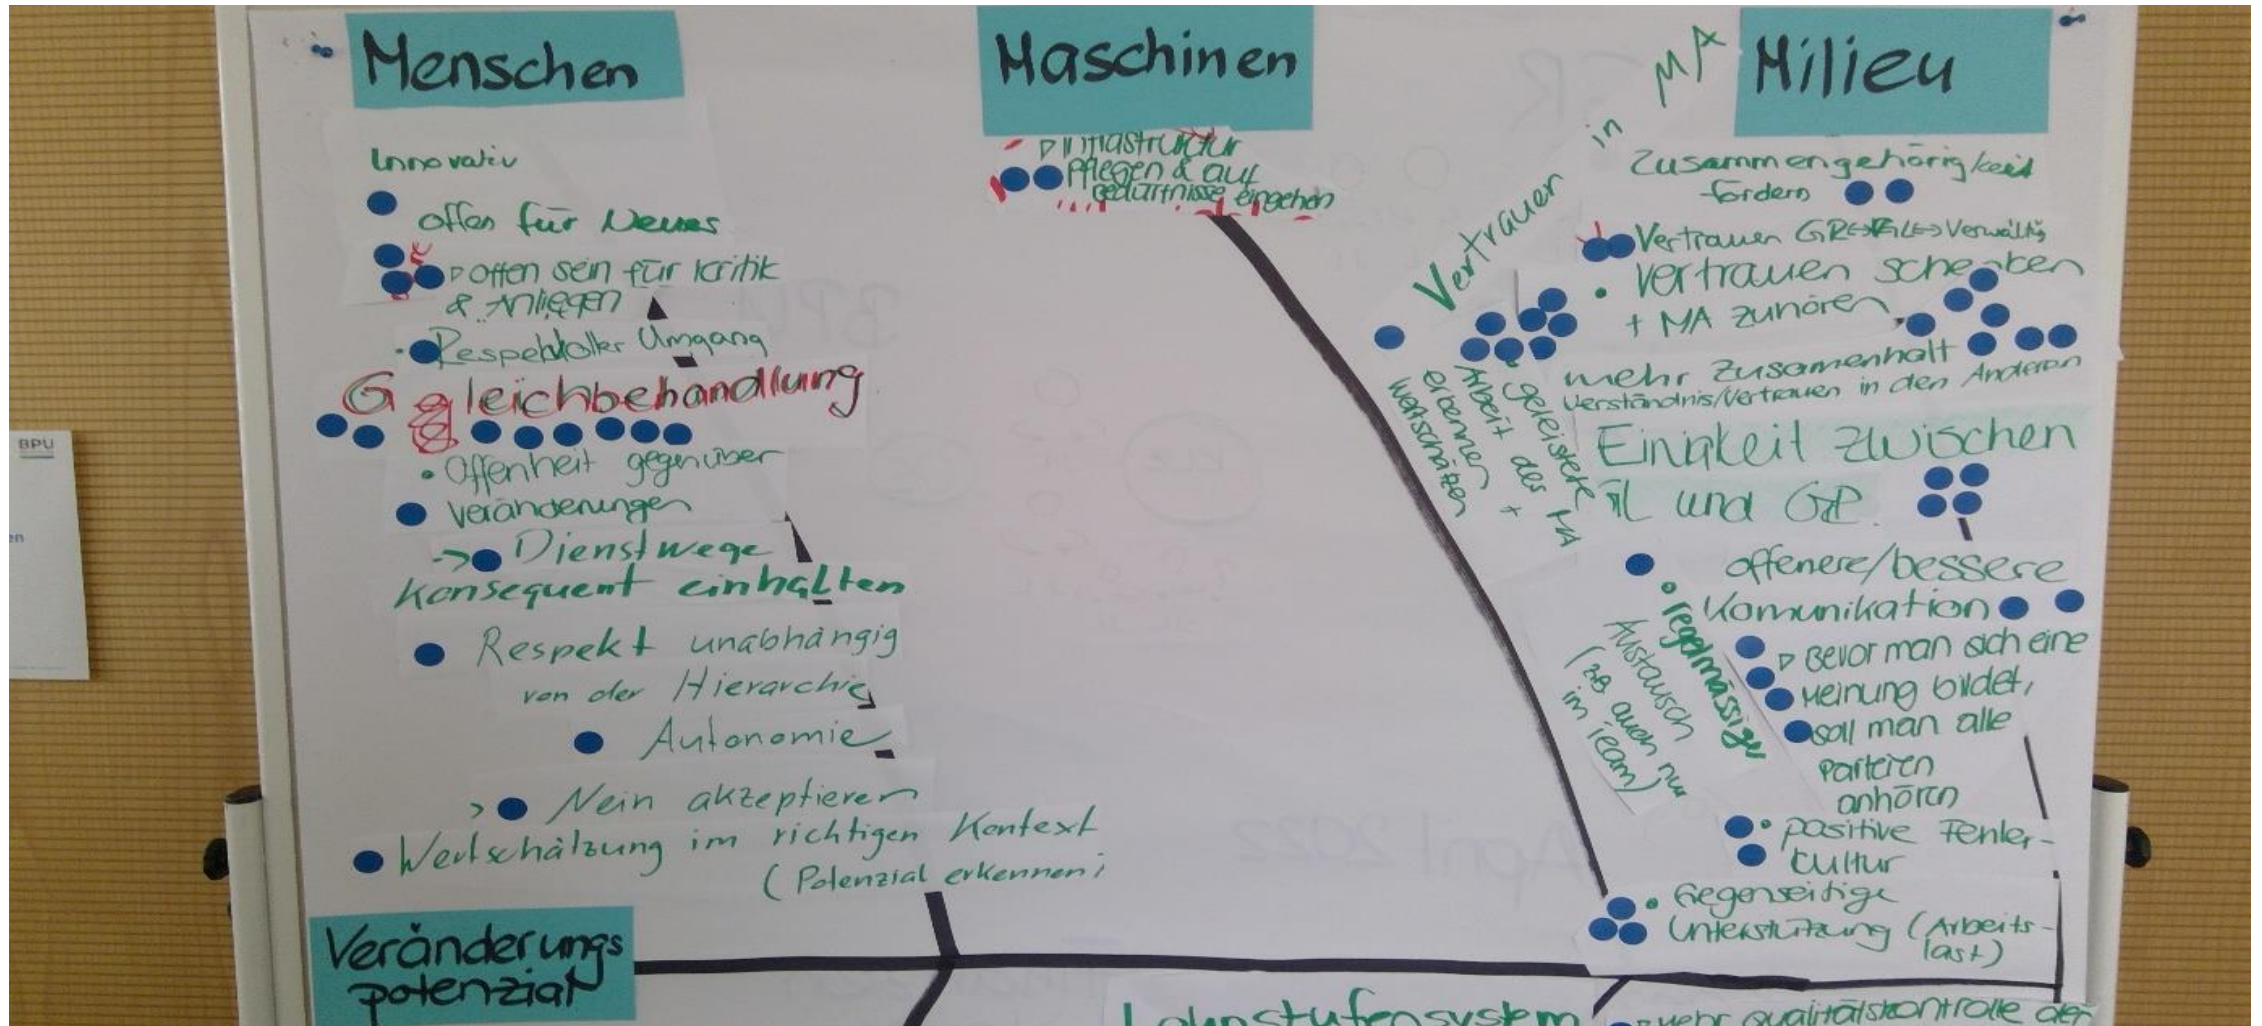 Menschen
Innovativ
offen für Neues
offen sein für Kritik
& Anliegen
Respektvoller Umgang
G gleichbehandlung
• Offenheit gegenüber
Veränderungen
-> Dienstwege
Konsequent einhalten
Respekt unabhängig
von der Hierarchie
Autonomie
> Nein akzeptieren
Wertschätzung im richtigen Kontext
(Potenzial erkennen)
Veränderungs
potenzial
Maschinen
Infrastruktur
pflegen & auf
Bedürfnisse eingehen
Milieu
Vertrauen in MA
Zusammengehörigkeit
fördern
Vertrauen GR<->GL<->Verwaltg
• Vertrauen schenken
+ MA zuhören
mehr Zusamenhalt
Verständnis/Vertrauen in den Anderen
• geleistete
Arbeit des MA
erkennen +
wertschätzen
Einigkeit zwischen
GL und GR.
offenere/bessere
Komunikation
• regelmässiger
Austausch
(zB auch nur
im Team)
Bevor man sich eine
Meinung bildet,
soll man alle
Parteien
anhören
• positive Fehler-
kultur
• Gegenseitige
Unterstützung (Arbeits-
last)
Lohnstufensystem
mehr Qualitätskontrolle der
BPU
en
April 2022